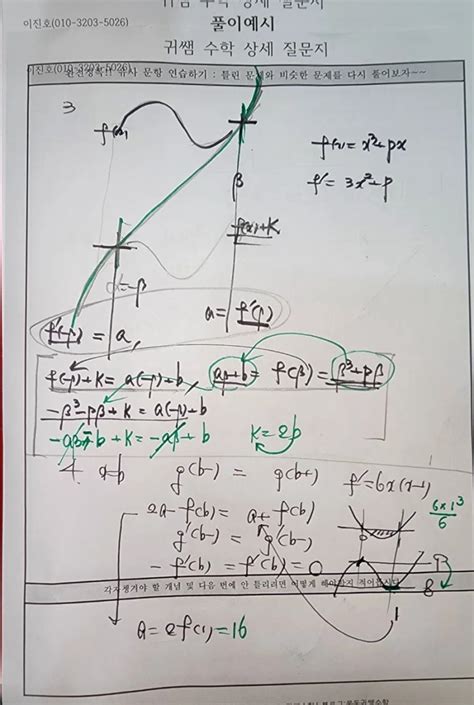 귀쌤 수학 상세 질문지
이진호(010-3203-5026)
풀이예시
귀쌤 수학 상세 질문지
이진호(010-3203-5026)
유사 문항 연습하기 : 틀린 문제와 비슷한 문제를 다시 풀어보자~~
3
f(x)
f(x)=x³+px
f'=3x²+p
β
f(x)+K
α=-β
a=f'(β)
f'(-β)=a,
f(-β)+K=a(-β)+b, aβ+b=f(β)=β³+pβ
-β³-pβ+K=a(-β)+b
-aβ-b+K=-aβ+b K=2b
4. x=b g(b-) = g(b+) f'=6x(x-1)
2a-f(b)=a+f(b)
6×1³
6
g'(b-)=g'(b+)
-f'(b)=f'(b)=0
9
8
각자 챙겨야 할 개념 및 다음 번에 안 틀리려면 어떻게 해야할지 적어봅시다
1
a=2f(1)=16